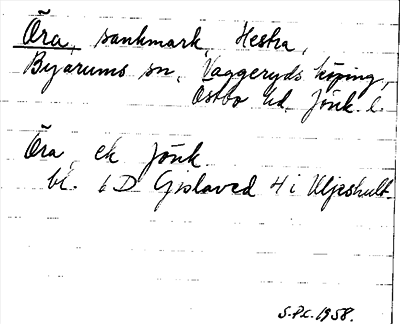 Öra, sankmark, Hestra,
Byarums sn, Vaggeryds köping,
Östbo hd, Jönk. l.
Öra, ek Jönk.
bl. 6 D Gislaved 4 i Uljeshult.
S.P.C. 1958.